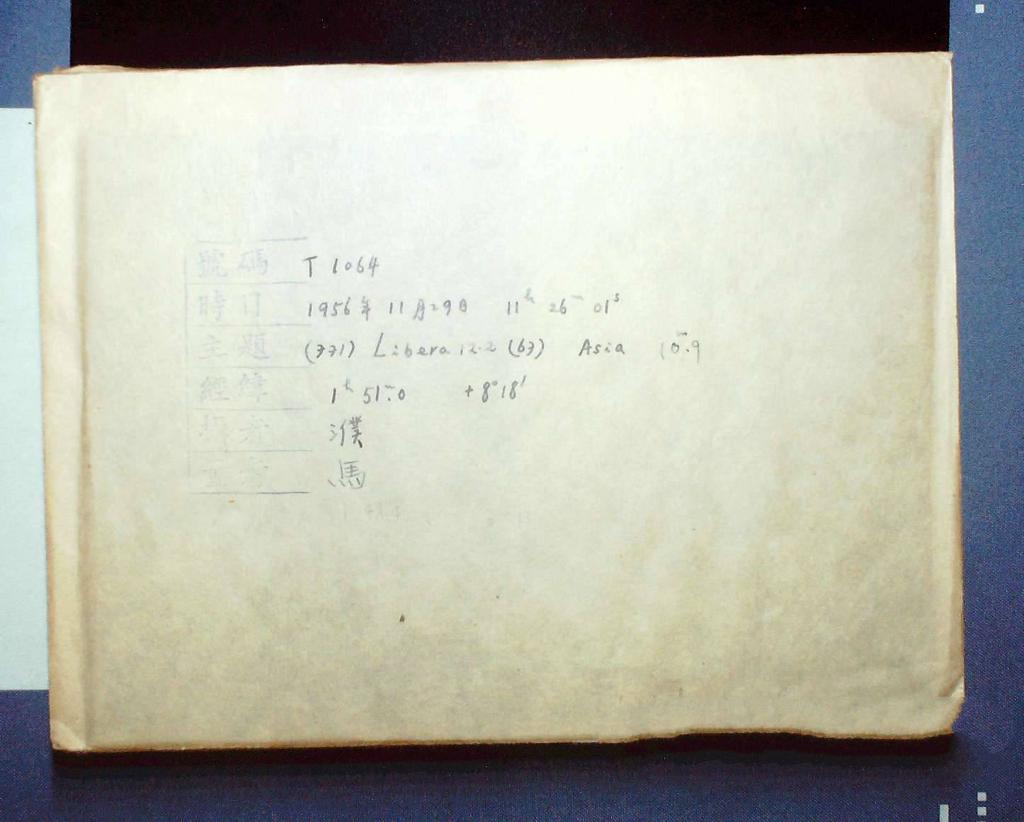 號碼 T 1064
時日 1956年 11月29日 11h 26m 01s
主題 (771) Libera 12.2 (67) Asia 10.9
經緯 1h 51m.0 +8°18'
濮
馬